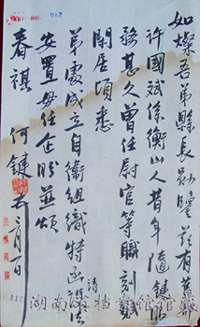 如燦吾弟縣長勛鑒茲有舊部
許國斌係衡山人昔年隨鍵服
務甚久曾任尉官等職刻
閒居頃悉
弟處成立自衛組織特函請設法
安置毋任企盼並頌
春祺 何鍵 月一日
湖南省档案馆